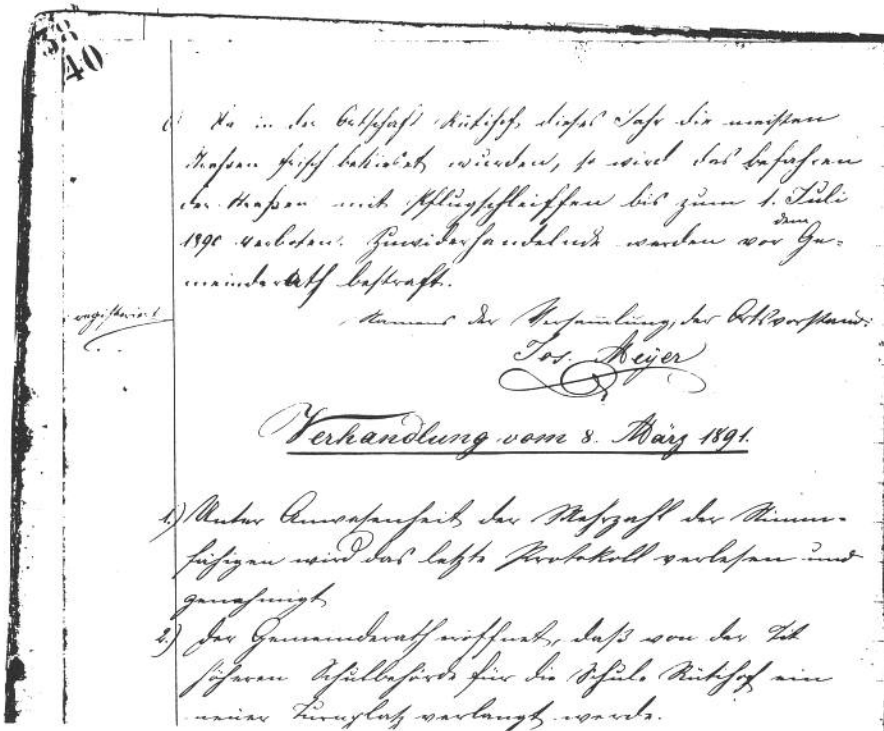 38
40
Da in der Ortschaft Rütihof, dieses Jahr die meisten
Straßen frisch bekieset wurden, so wird das befahren
der Straßen mit Pflugschleiffen bis zum 1. Juli
1890 verboten. Zuwiderhandelnde werden vor dem Ge-
meinderath bestraft.
registriert
Namens der Versammlung, der Ortsvorstand:
Jos. Meyer
Verhandlung vom 8. März 1891.
1.) Unter Anwesenheit der Mehrzahl der Stimm-
fähigen wird das letzte Protokoll verlesen und
genehmigt
2.) Der Gemeinderath eröffnet, daß von der Tit
höheren Schulbehörde für die Schule Rütihof ein
neuer Turnplatz verlangt werde.